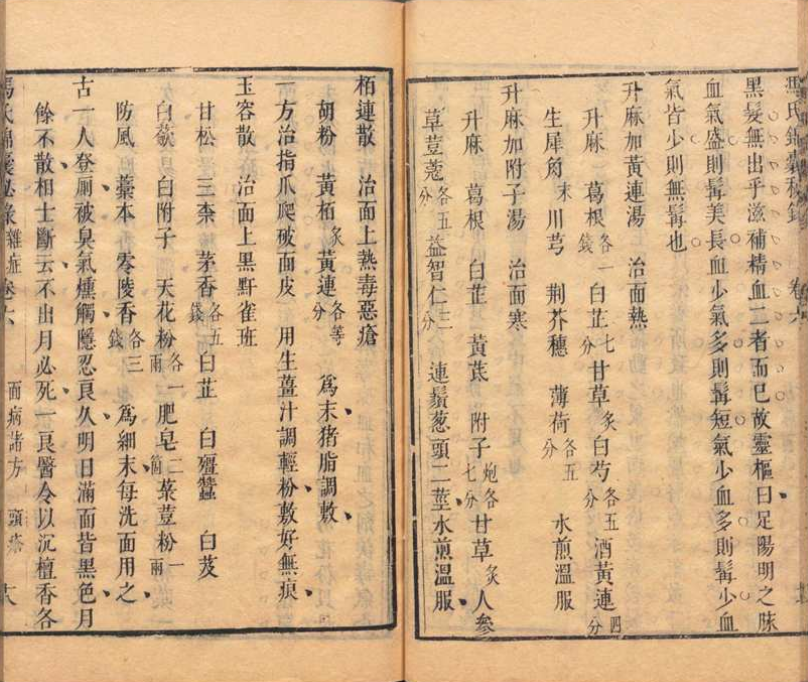 馮氏錦囊秘錄 卷六
黑髮無出乎滋補精血二者而已故靈樞曰足陽明之脉
血氣盛則髯美長血少氣多則髯短氣少血多則髯少血
氣皆少則無髯也
升麻加黃連湯 治面熱
升麻 葛根各一錢 白芷七分 甘草炙 白芍各五分 酒黃連四分
生犀角末 川芎 荆芥穗 薄荷各五分 水煎溫服
升麻加附子湯 治面寒
升麻 葛根 白芷 黃芪 附子炮各七分 甘草炙 人參
草荳蔻各五分 益智仁三分 連鬚葱頭二莖水煎溫服
栢連散 治面上熱毒惡瘡
胡粉 黃栢炙 黃連各等分 爲末猪脂調敷
一方治指爪爬破面皮 用生薑汁調輕粉敷好無痕
玉容散 治面上黑䵟雀班
甘松 三柰 茅香各五錢 白芷 白殭蠶 白芨
白蘞 白附子 天花粉各一兩 肥皂二箇 菉荳粉一兩
防風 藁本 零陵香各三錢 爲細末每洗面用之
古一人登厠被臭氣燻觸隱忍良久明日滿面皆黑色月
餘不散相士斷云不出月必死一良醫令以沉檀香各
馮氏錦囊秘錄 雜症卷六 面病諸方 頭